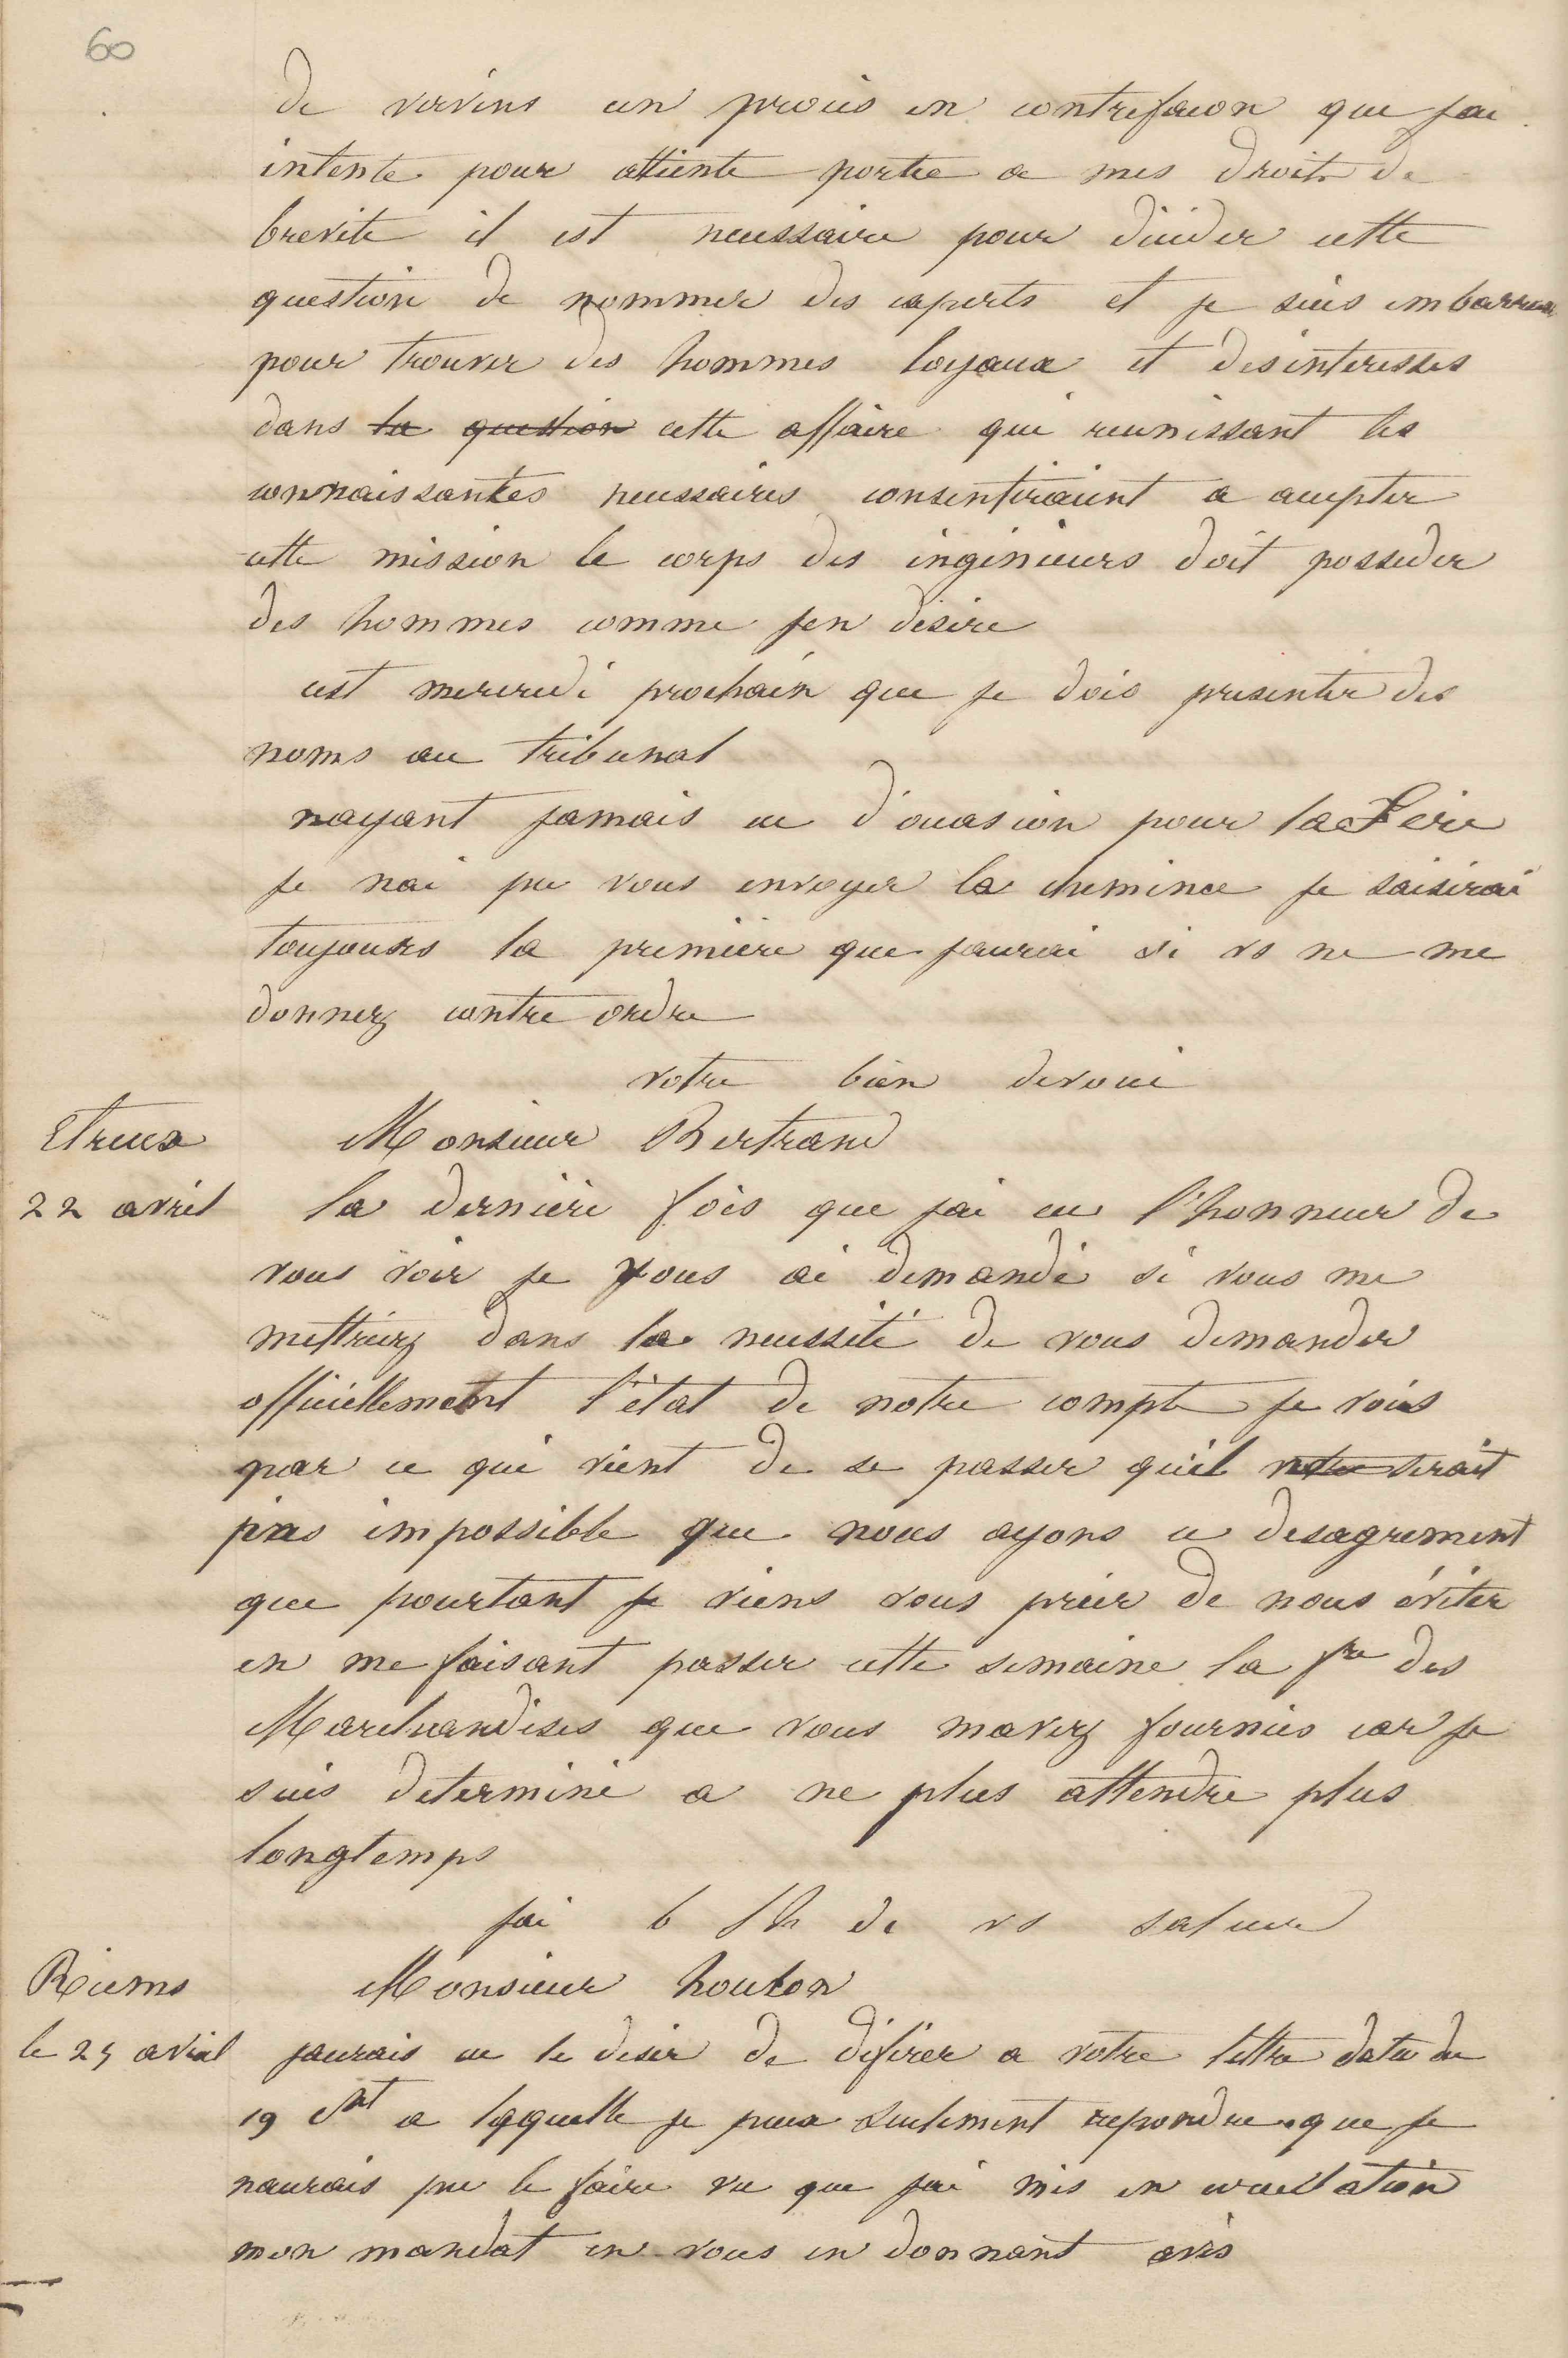 60
de vervins un procès en contrefacon que jai
intente pour atteinte portee a mes droits de
brevete il est necessaire pour decider cette
question de nommer des experts et je suis embarrasse
pour trouver des hommes loyaux et desinteresses
dans la question cette affaire qui reunissant les
connaissantes necessaires consentiraient a accepter
cette mission le corps des ingenieurs doit posseder
des hommes comme jen desire
cest mercredi prochain que je dois presenter des
noms au tribunal
nayant jamais eu d'occasion pour la Fère
je nai pu vous envoyer la cheminee je saisirai
toujours la premiere que jaurai si vs ne me
donnez contre ordre
votre bien devoué
Etreux Monsieur Bertrand
22 avril la derniere fois que jai eu l'honneur de
vous voir je vous ai demandé si vous me
mettriez dans la necessité de vous demander
officiellement l'état de notre compte je vois
par ce qui vient de se passer quil ne serait
pas impossible que nous ayons ce desagrement
que pourtant je viens vous prier de nous éviter
en me faisant passer cette semaine la fre des
Marchandises que vous mavez fournies car je
suis determiné a ne plus attendre plus
longtemps
jai b lh de vs saluer
Reims Monsieur houlon
le 25 avril jaurais eu le desir de déférer a votre lettre datee du
19 ct a laquelle je peux seulement repondre que je
naurais pu le faire vu que jai mis en circulation
mon mandat en vous en donnant avis